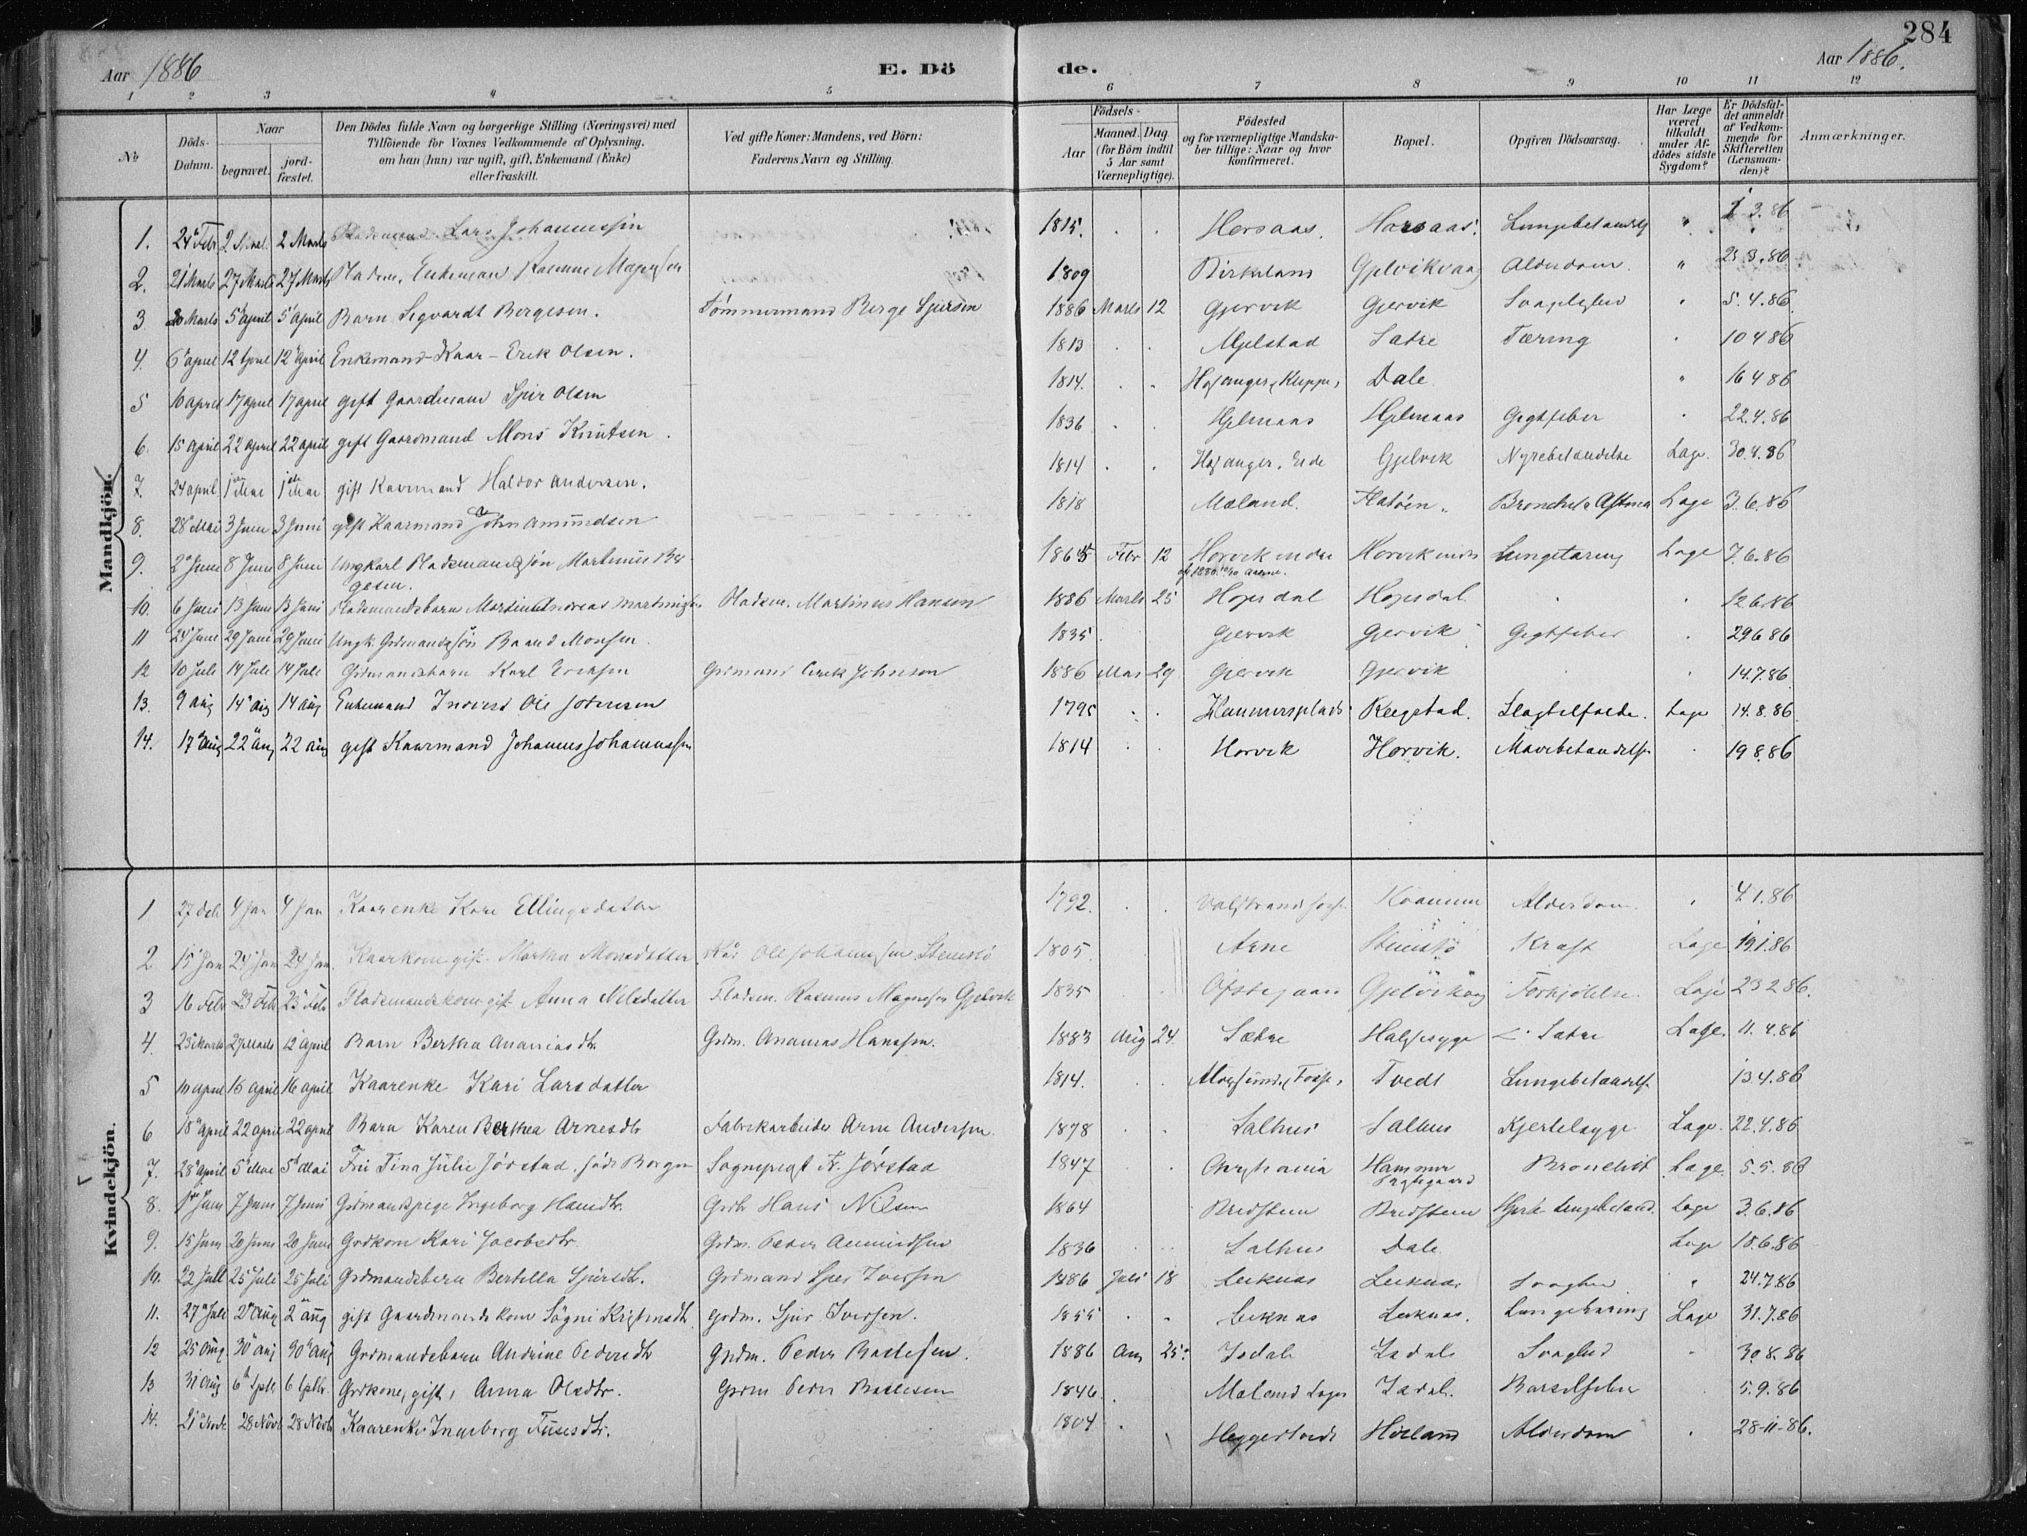 284
Aar 1886
E. Dö de.
Aar 1886.
1 2 3 4 5 6 7 8 9 10 11 12
No
Döds-Datum.
Naar
begravet.
jordfæstet.
Den Dödes fulde Navn og borgerlige Stilling (Næringsvei) med
Tilföiende for Voxnes Vedkommende af Oplysning,
om han (hun) var ugift, gift, Enkemand (Enke)
eller fraskilt.
Ved gifte Koner: Mandens, ved Börn:
Faderens Navn og Stilling.
Födsels-
Aar
Maaned. Dag
(for Börn indtil
5 Aar samt
Værnepligtige).
Födested
og for værnepligtige Mandskaber tillige: Naar og hvor
konfirmeret.
Bopæl.
Opgiven Dödsaarsag.
Har Læge
været
tilkaldt
under Afdödes sidste
Sygdom?
Er Dödsfaldet anmeldt
af Vedkommende for
Skifteretten
(Lensmanden)?
Anmærkninger.
Mandkjön.
1. 24 Febr 2 Marts 2 Marts Lars Johannessen 1815. Horsaas. Horsaas. Lungebetændelse " 1.3.86
2. 21 Marts 27 Marts 27 Marts Pladsm. Enkemand Rasmus Magnesen 1809 Birkeland Gjelvikvaag Alderdom. " 23.3.86
3 30 Marts 5 April 5 April Barn Sigvardt Bergesen. Tømmermand Berge Sjursen 1886 Marts 12 Gjervik Gjervik Svaglighed 5.4.86
4. 6 april 12 April 12 April Enkemand-Kaar-Erik Olsen. 1813 Mjelstad Satre Tæring 10 4 86
5 10 april 17 april 17 april gift Gaardmand Sjur Olsen 1814. Dale " 16 4 86
6. 15 April 22 april 22 april gift Gaardmand Mons Knutsen. 1836 Hjelmaas Hjelmaas Gigtfeber 22.4.86
7. 24 april 1 Mai 1 Mai gift Kaarmand Haldor Andersen. 1814 Hosanger, Eide Gjelvik Nyrebetændelse Læge. 30.4.86
8. 28 Mai 3 Juni 3 Juni gift Kaarmand John Amundsen 1818 Mæland. Flatøen. Bronchit & Astma Læge 3.6.86
9. 2 Juni 8 Juni 8 Juni Ungkarl Pladsmandssøn Martinus Bergesen. 1865 Febr 12 Horvik indre Horvik indre Lungetæring Læge 7.6.86
10. 6 Juni 13 Juni 13 Juni Pladsmandsbarn Martin Andreas Martinussen Pladsm. Martinus Hansen 1886 Marts 25 Hopsdal Hopsdal 12 6.86
11 24 Juni 29 Juni 29 Juni Ungk. Grdmandssøn Baard Monsen. 1835 Gjervik Gjervik Gigtfeber 29 6 86
12 10 Juli 14 Juli 14 Juli Grdmandsbarn Karl Eriksen Grdmand Erik Johnson 1886 Mai 29 Gjervik Gjervik 14.7.86
13. 9 aug 14 aug 14 aug Enkemand Indverst Ole Johnsen 1795 Hammersplads Reigstad. Slagtilfælde. Læge 14.8.86
14. 17 aug 22 aug 22 aug gift Kaarmand Johannes Johannessen 1814 Horvik Horvik. Mavebetændelse 19 8.86
Kvindekjön.
1 27 Deb 4 Jan 4 Jan Kaarenke Kari Ellingsdatter 1792. Alderdom. 4.1.86
2 15 Jan 24 Jan 24 Jan Kaarkone gift Martha Monsdatter Kår Ole Johannesen Stensø 1805 Arne Stensø Kræft Læge 19.1.86
3 16 Febr 23 Febr 23 Febr Pladsmandskone gift Anna Nilsdatter Pladsm. Rasmus Magnesen Gjelvik 1835 Ofstegaard Gjelvikvaag Forkjølelse. Læge 23 2 86.
4. 25 Marts 27 Marts 12 April Barn Bertha Ananiasdtr. Grdm. Ananias Hansen. 1883 Aug 24. Sætre Halsesyge Satre Læge. 11.4.86
5 10 april 16 april 16 april Kaarenke Kari Larsdatter 1814. Alversund, Fosse, Tvedt Lungebetændelse 13.4.86
6 18 April 22 april 22 april Barn Karen Berthea Arnesdtr Fabrikarbeider Arne Andersen. 1878 Salhus Salhus Kjertelsyge Læge. 22.4.86
7. 28 April 5 Mai 5 Mai Fru Tina Julie Jørstad, født Borgen Sognepræst Fr. Jørstad 1847 Christiania Hammer Prestegaard Bronchit Læge 5.5.86
8. 1 Juni 7 Juni 7 Juni Grdmandspige Ingeborg Hansdtr. Grdbr Hans Nilsen 1864 Bredsteen Bredsteen Hjerte Lungebetænd. Læge 3.6.86
9. 15 Juni 20 Juni 20 Juni Grdkone Kari Jacobsdtr. Grdm. Peder Amundsen 1836 Salhus Dale Læge 18.6.86
10. 22 Juli 25 Juli 25 Juli Grdmandsbarn Bertilla Sjursdtr. Grdmand Sjur Iversen 1886 Juli 18 Leiknæs Leiknæs Svaghed " 24.7.86
11. 27 Juli 2 aug 2 aug gift Gaardmandskone Sygni Kristensdtr. Grdm. Sjur Iversen. 1855 Leiknæs Leiknæs. Lungetæring Læge 31.7.86
12 25 Aug. 30 Aug 30 Aug Grdmandsbarn Andrine Pedersdtr Grdm. Peder Bastesen. 1886 Aug 25 Isdal Isdal Svaghed 30.8.86
13 31 Aug 6 Sptb 6 Sptbr. Grdkone, gift, Anna Olsdtr. Grdm Peder Bastesen 1846. Mæland Isdal. Barselfeber 5.9.86
14. 21 Nvbr 28 Novb 28 Novb Kaarenke Ingeborg Fusesdtr. 1804 Heggertveit Hirland Alderdom 28-11-86.